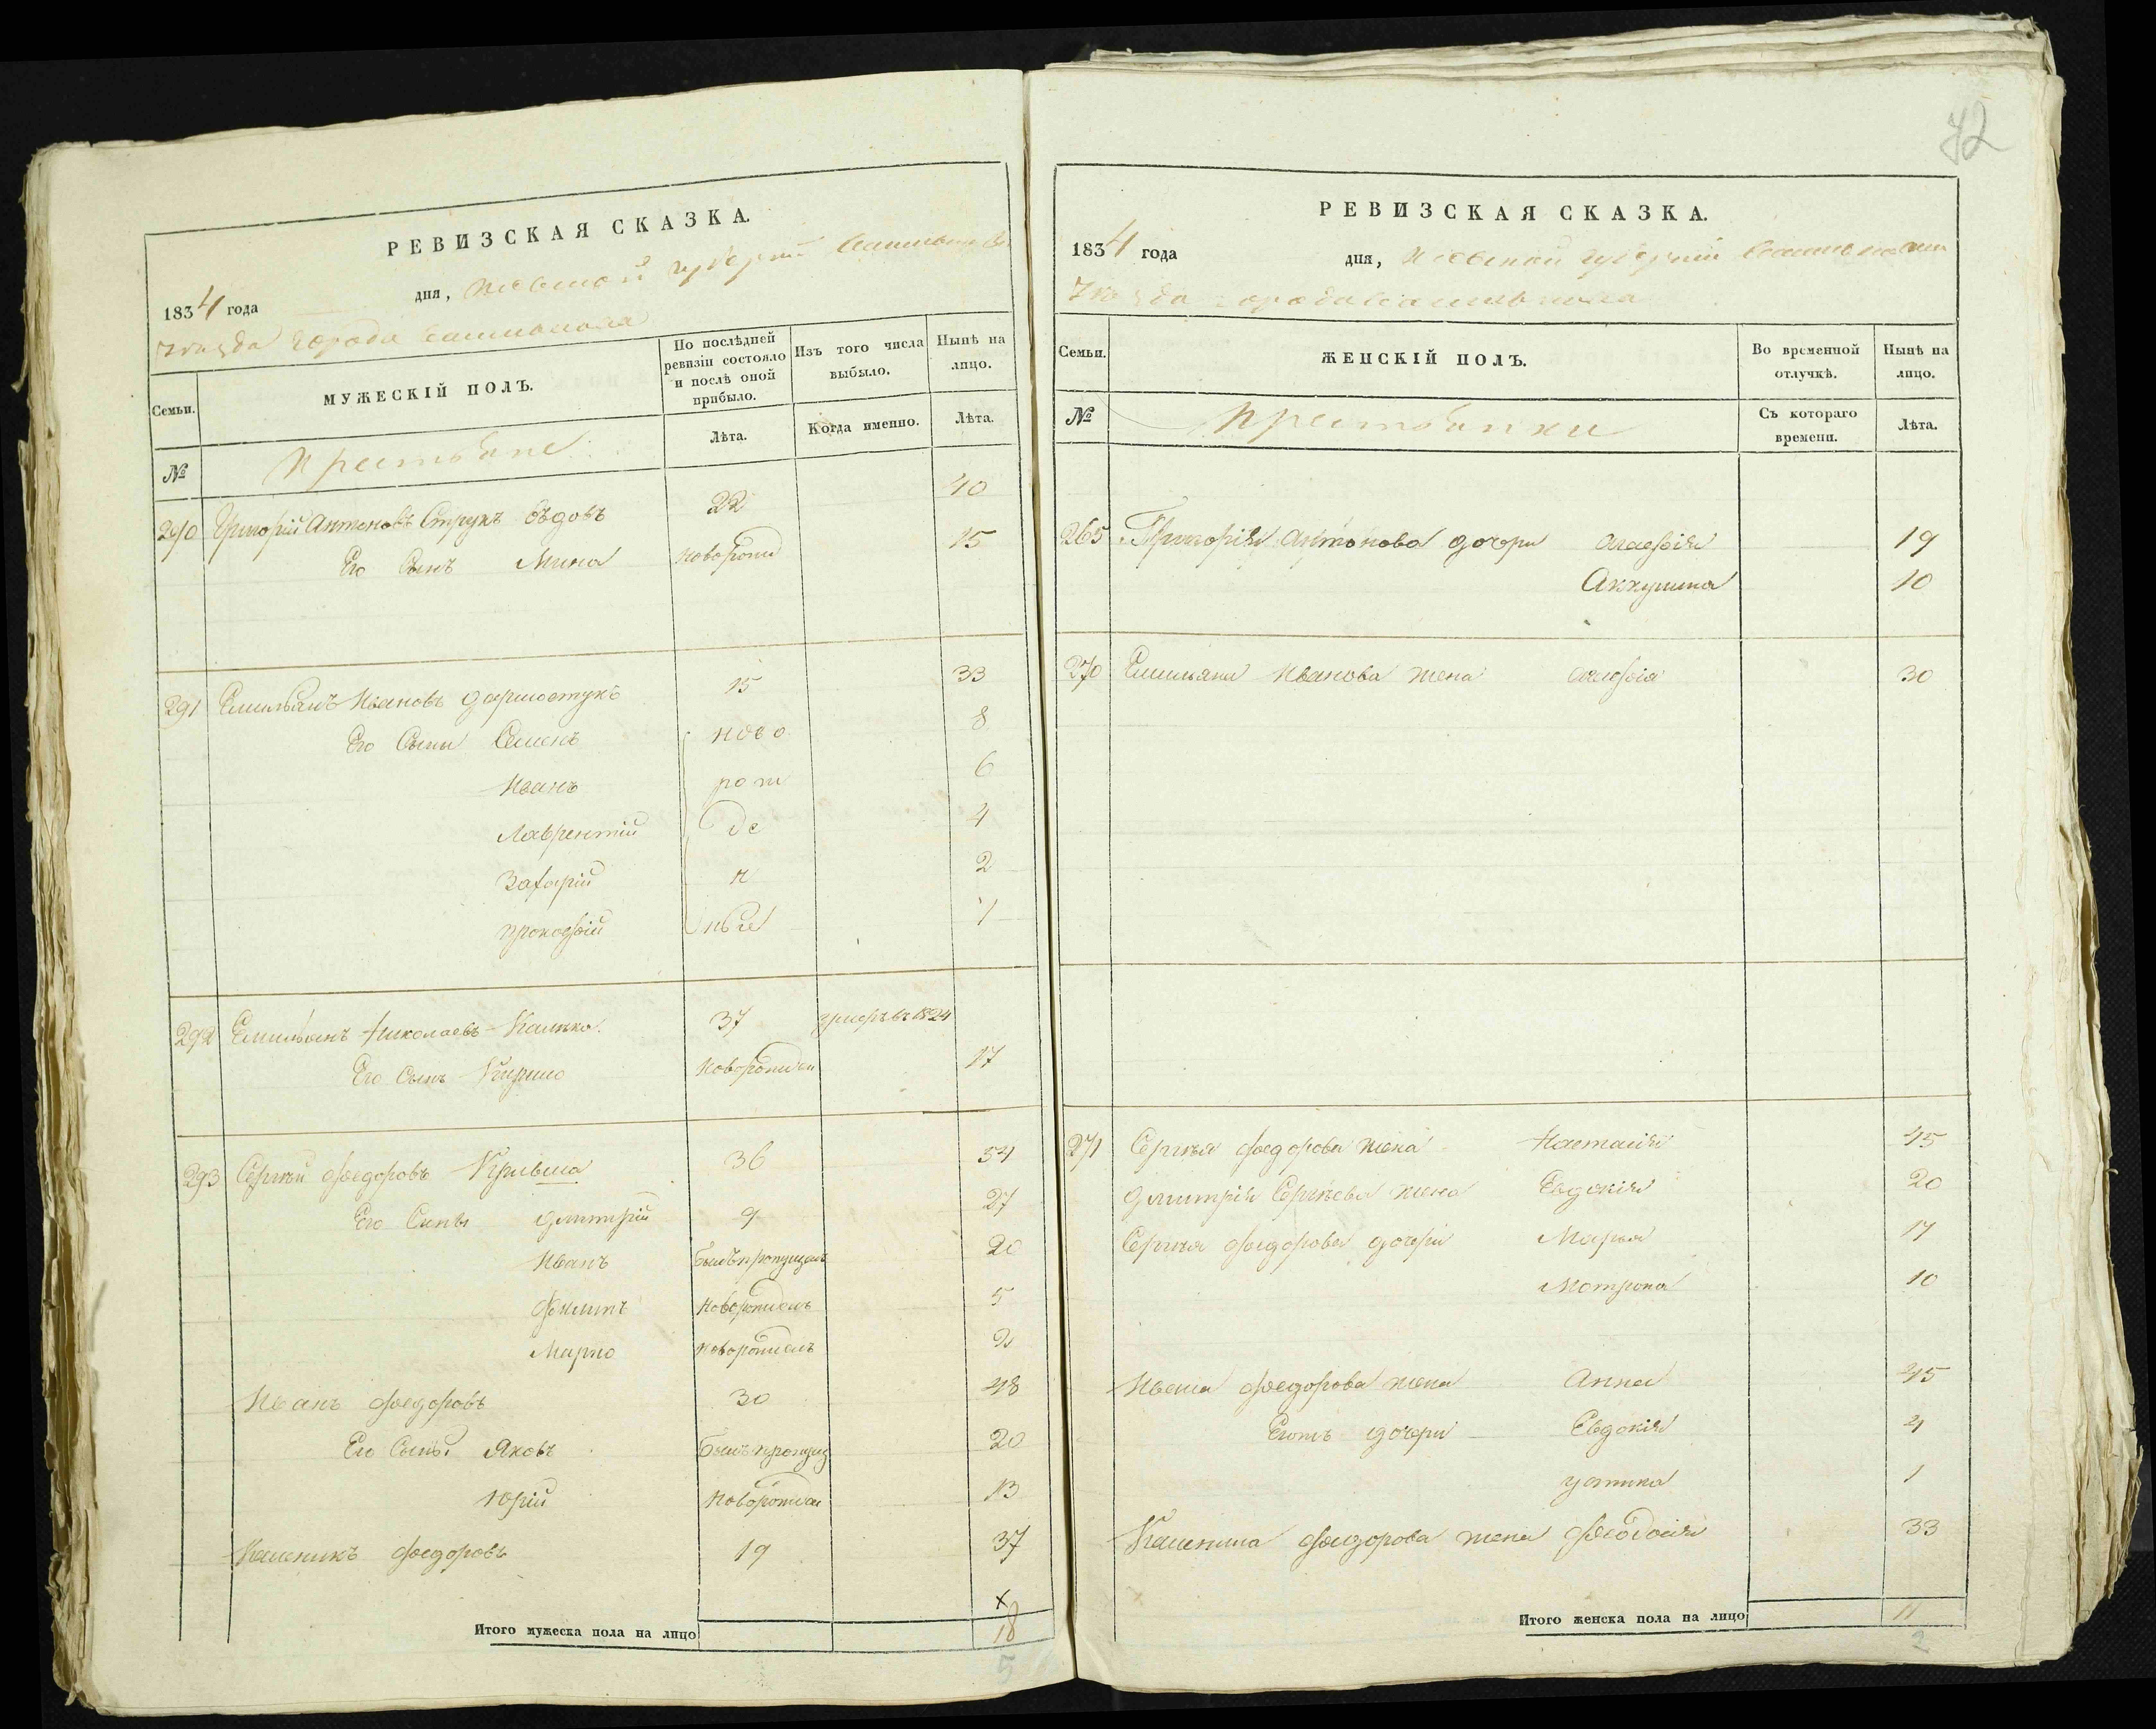 РЕВИЗСКАЯ СКАЗКА.
1834 года дня, Кіевской губерніи
города
Семьи. МУЖЕСКІЙ ПОЛЪ. По послѣдней ревизіи состояло и послѣ оной прибыло. Изъ того числа выбыло. Нынѣ на лицо.
№ Лѣта. Когда именно. Лѣта.
290 Григорій Антоновъ Струкъ 22 40
Его Сынъ Мина новорожд 15
291 Емильянъ Ивановъ 15 33
Его Сыны Семенъ ново 8
Иванъ рож 6
Лаврентій де 4
Захарій н 2
Прокофій ные 1
292 Емильянъ Николаевъ 37 умеръ въ 1824
Его Сынъ Кирило новорожден 17
293 Сергѣй Федоровъ 36 54
Его Сыны Дмитрій 9 27
Иванъ былъ пропущенъ 20
Филипъ новорожденъ 5
Марко новорожденъ 2
Иванъ Федоровъ 30 48
Его Сыны Яковъ былъ пропущ 20
Юрій новорожден 13
Каленикъ Федоровъ 19 37
Итого мужеска пола на лицо 18
5
42
РЕВИЗСКАЯ СКАЗКА.
1834 года дня, Кіевской губерніи
города
Семьи. ЖЕНСКІЙ ПОЛЪ. Во временной отлучкѣ. Нынѣ на лицо.
№ Съ котораго времени. Лѣта.
265 Григорія Антонова дочери Агафія 19
10
270 Емильяна Иванова жена Агафія 30
271 Сергѣя Федорова жена Настасія 45
Дмитрія Сергѣева жена Евдокія 20
Сергѣя Федорова дочери Марья 17
Мотрона 10
Ивана Федорова жена Анна 45
дочери Евдокія 4
1
Каленика Федорова жена Феодосія 33
Итого женска пола на лицо 11
2